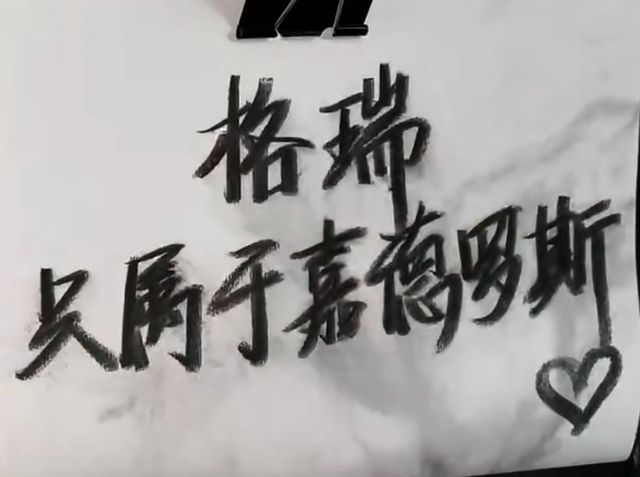 格瑞
只属于嘉德罗斯